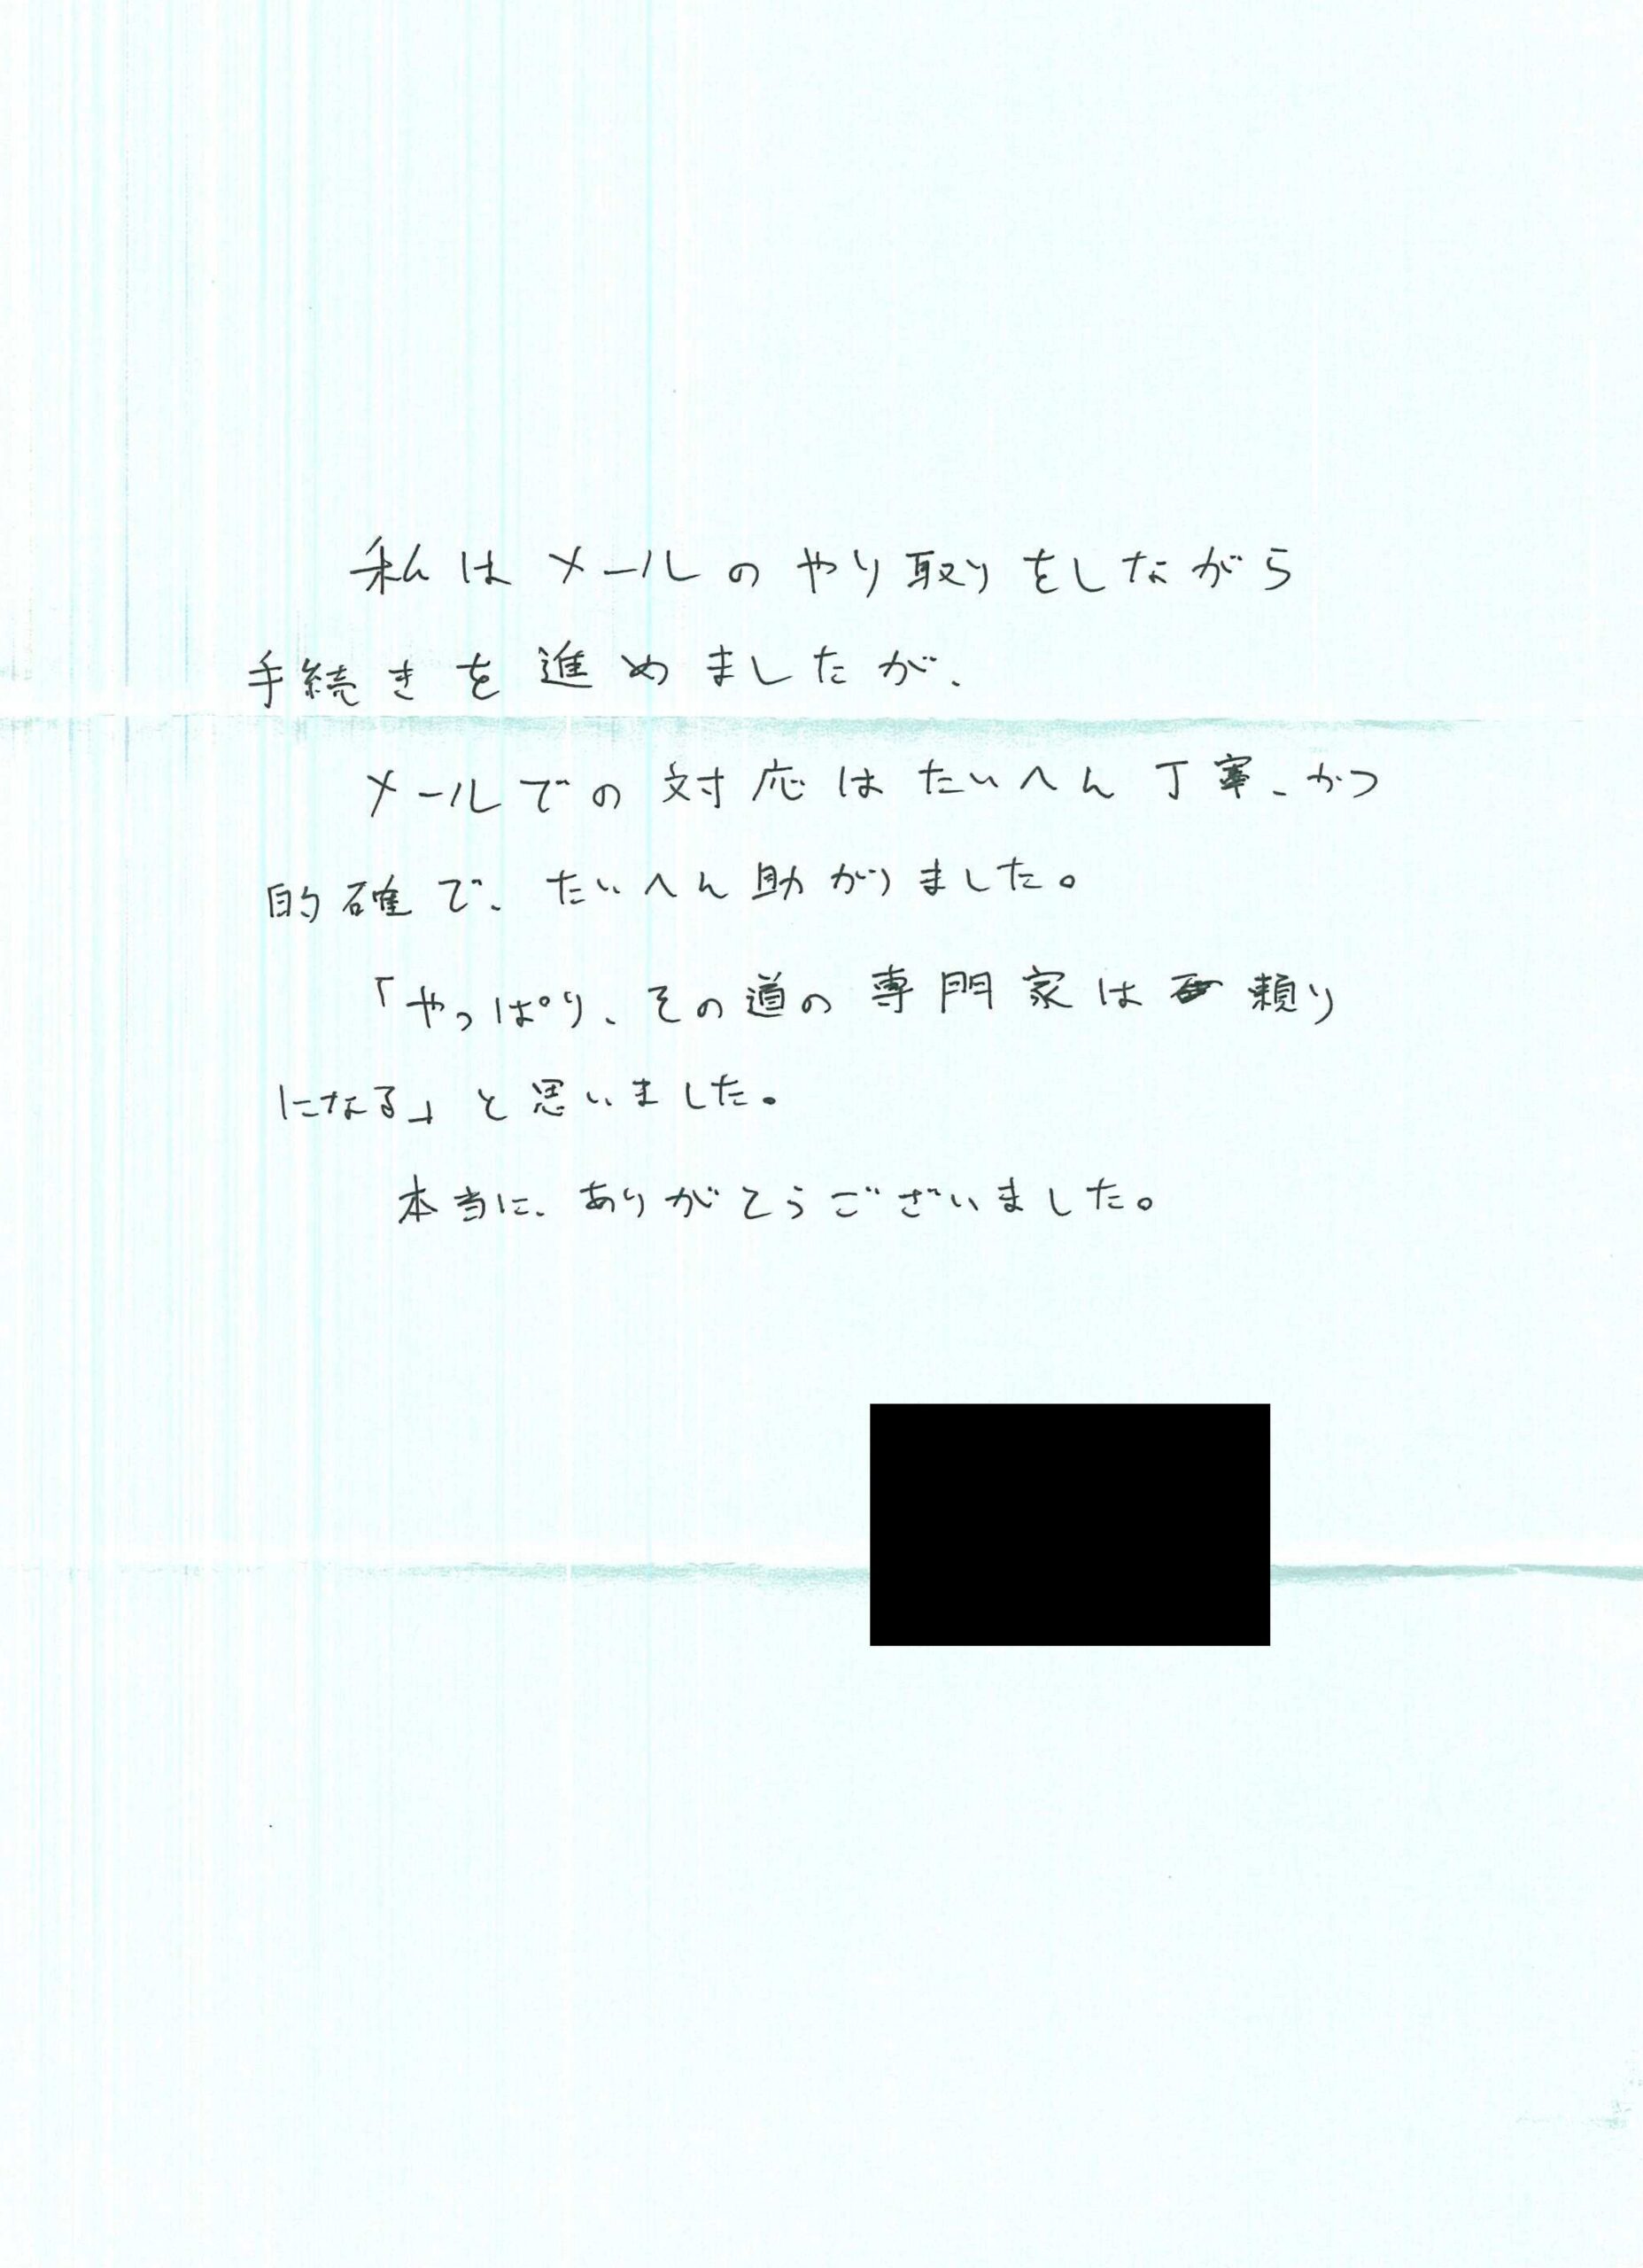 私はメールのやり取りをしながら
手続きを進めましたが、
メールでの対応はたいへん丁寧、かつ
的確で、たいへん助かりました。
「やっぱり、その道の専門家は頼り
になる」と思いました。
本当に、ありがとうございました。